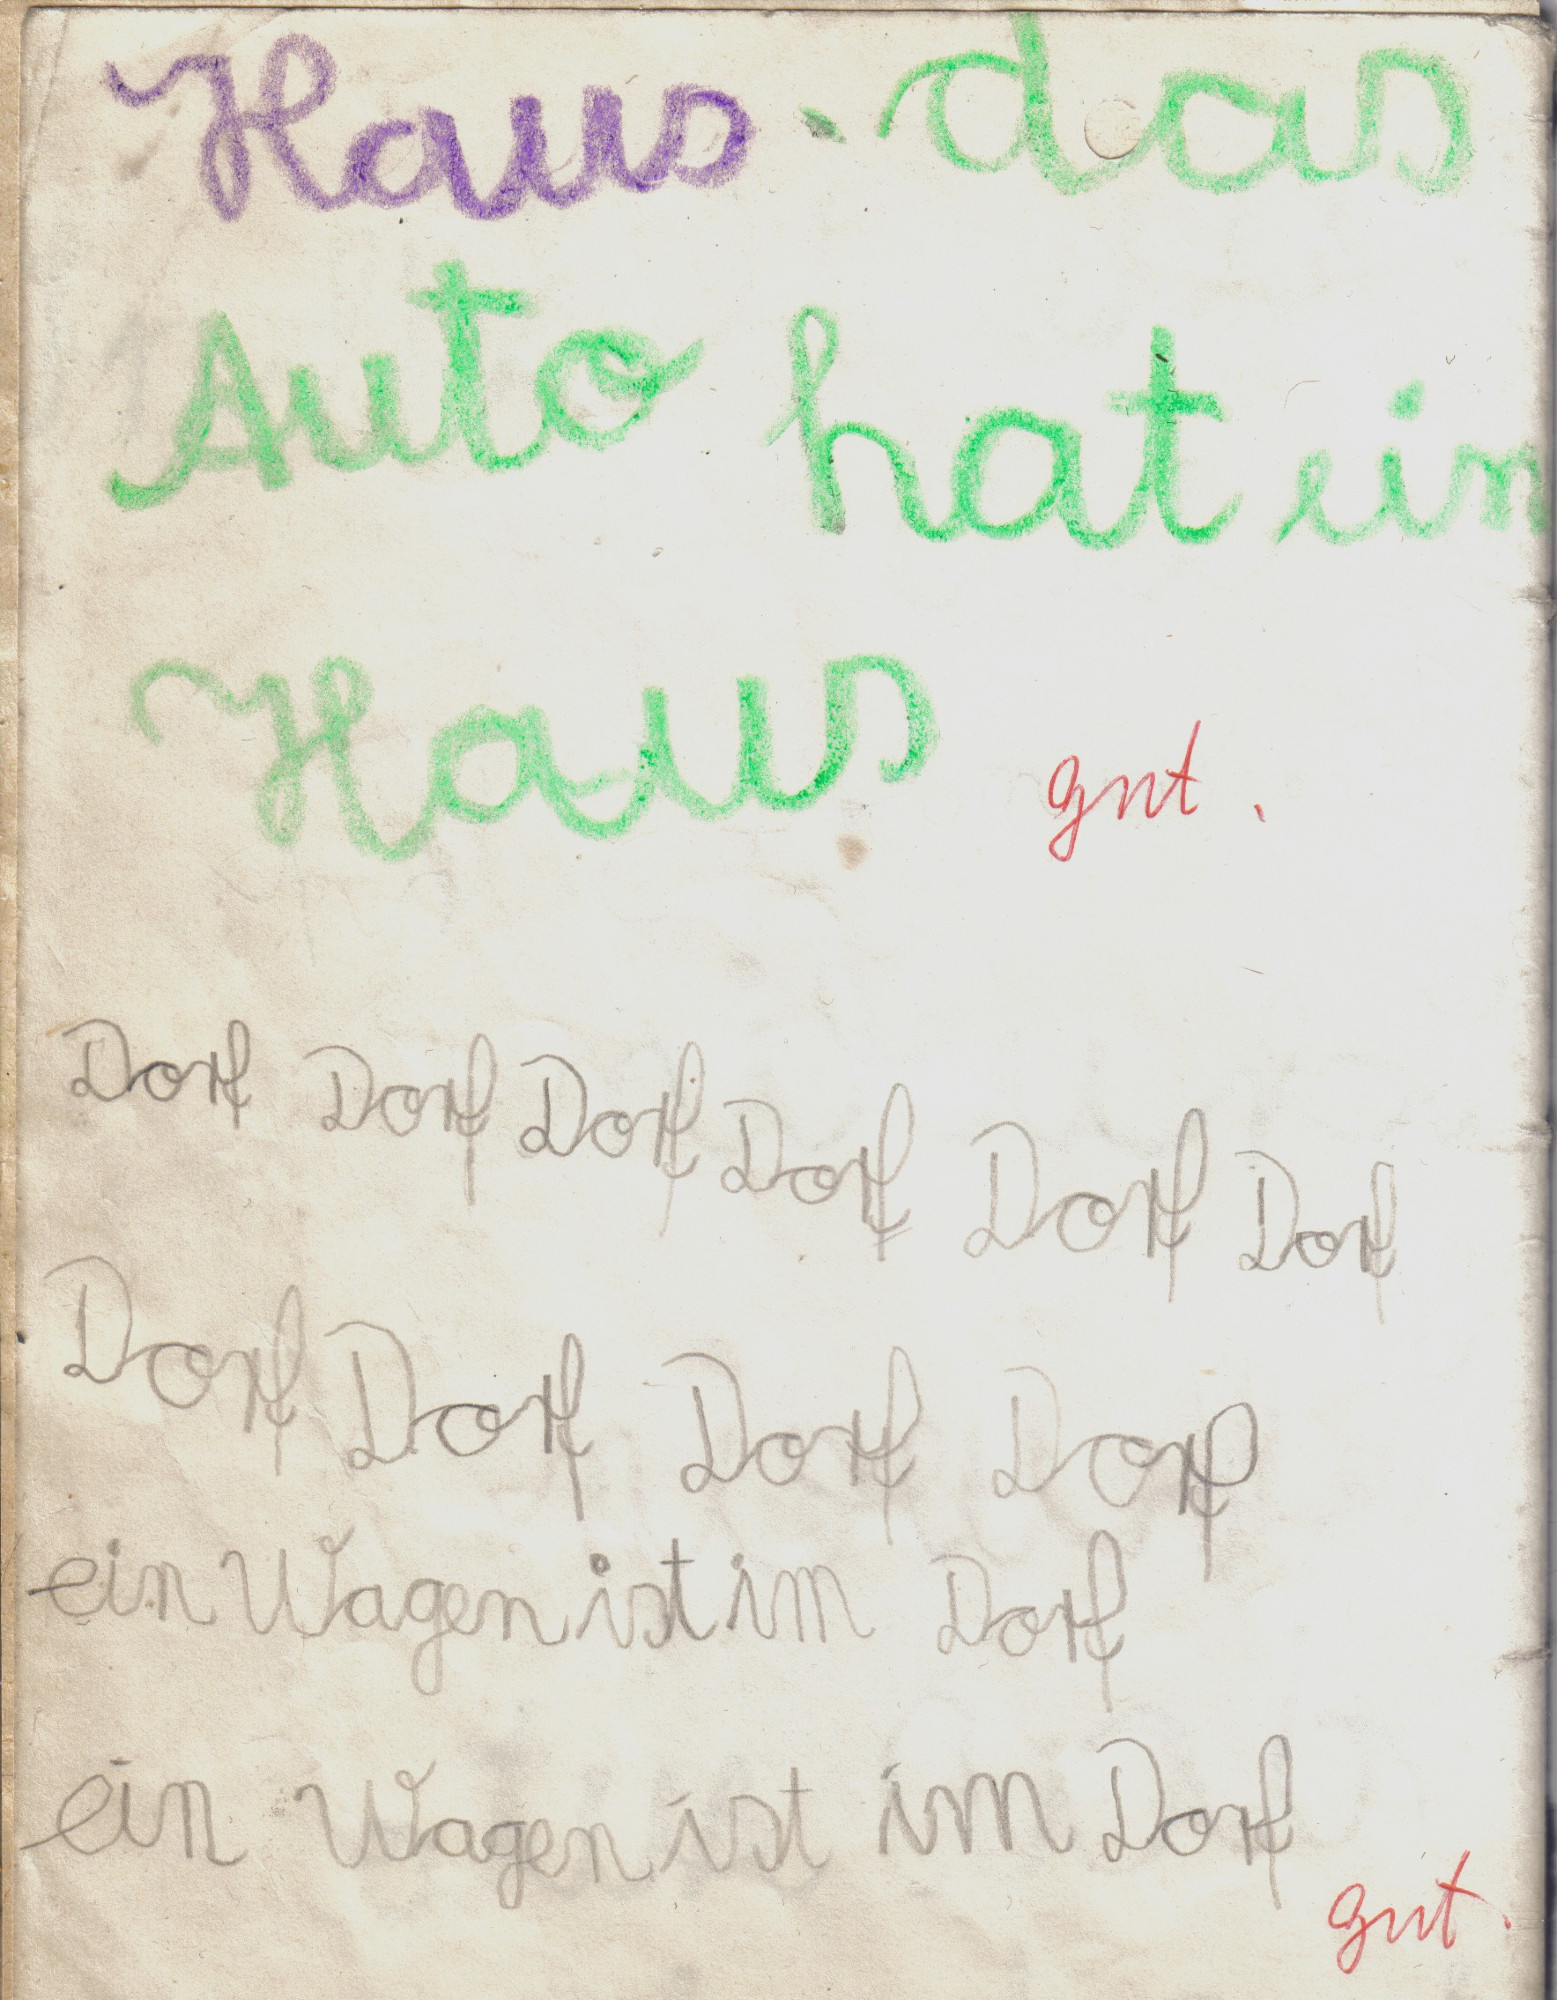 Haus. das
Auto hat ein
Haus gut.
Dorf Dorf Dorf Dorf Dorf Dorf
Dorf Dorf Dorf Dorf
ein Wagen ist im Dorf
ein Wagen ist im Dorf
gut.